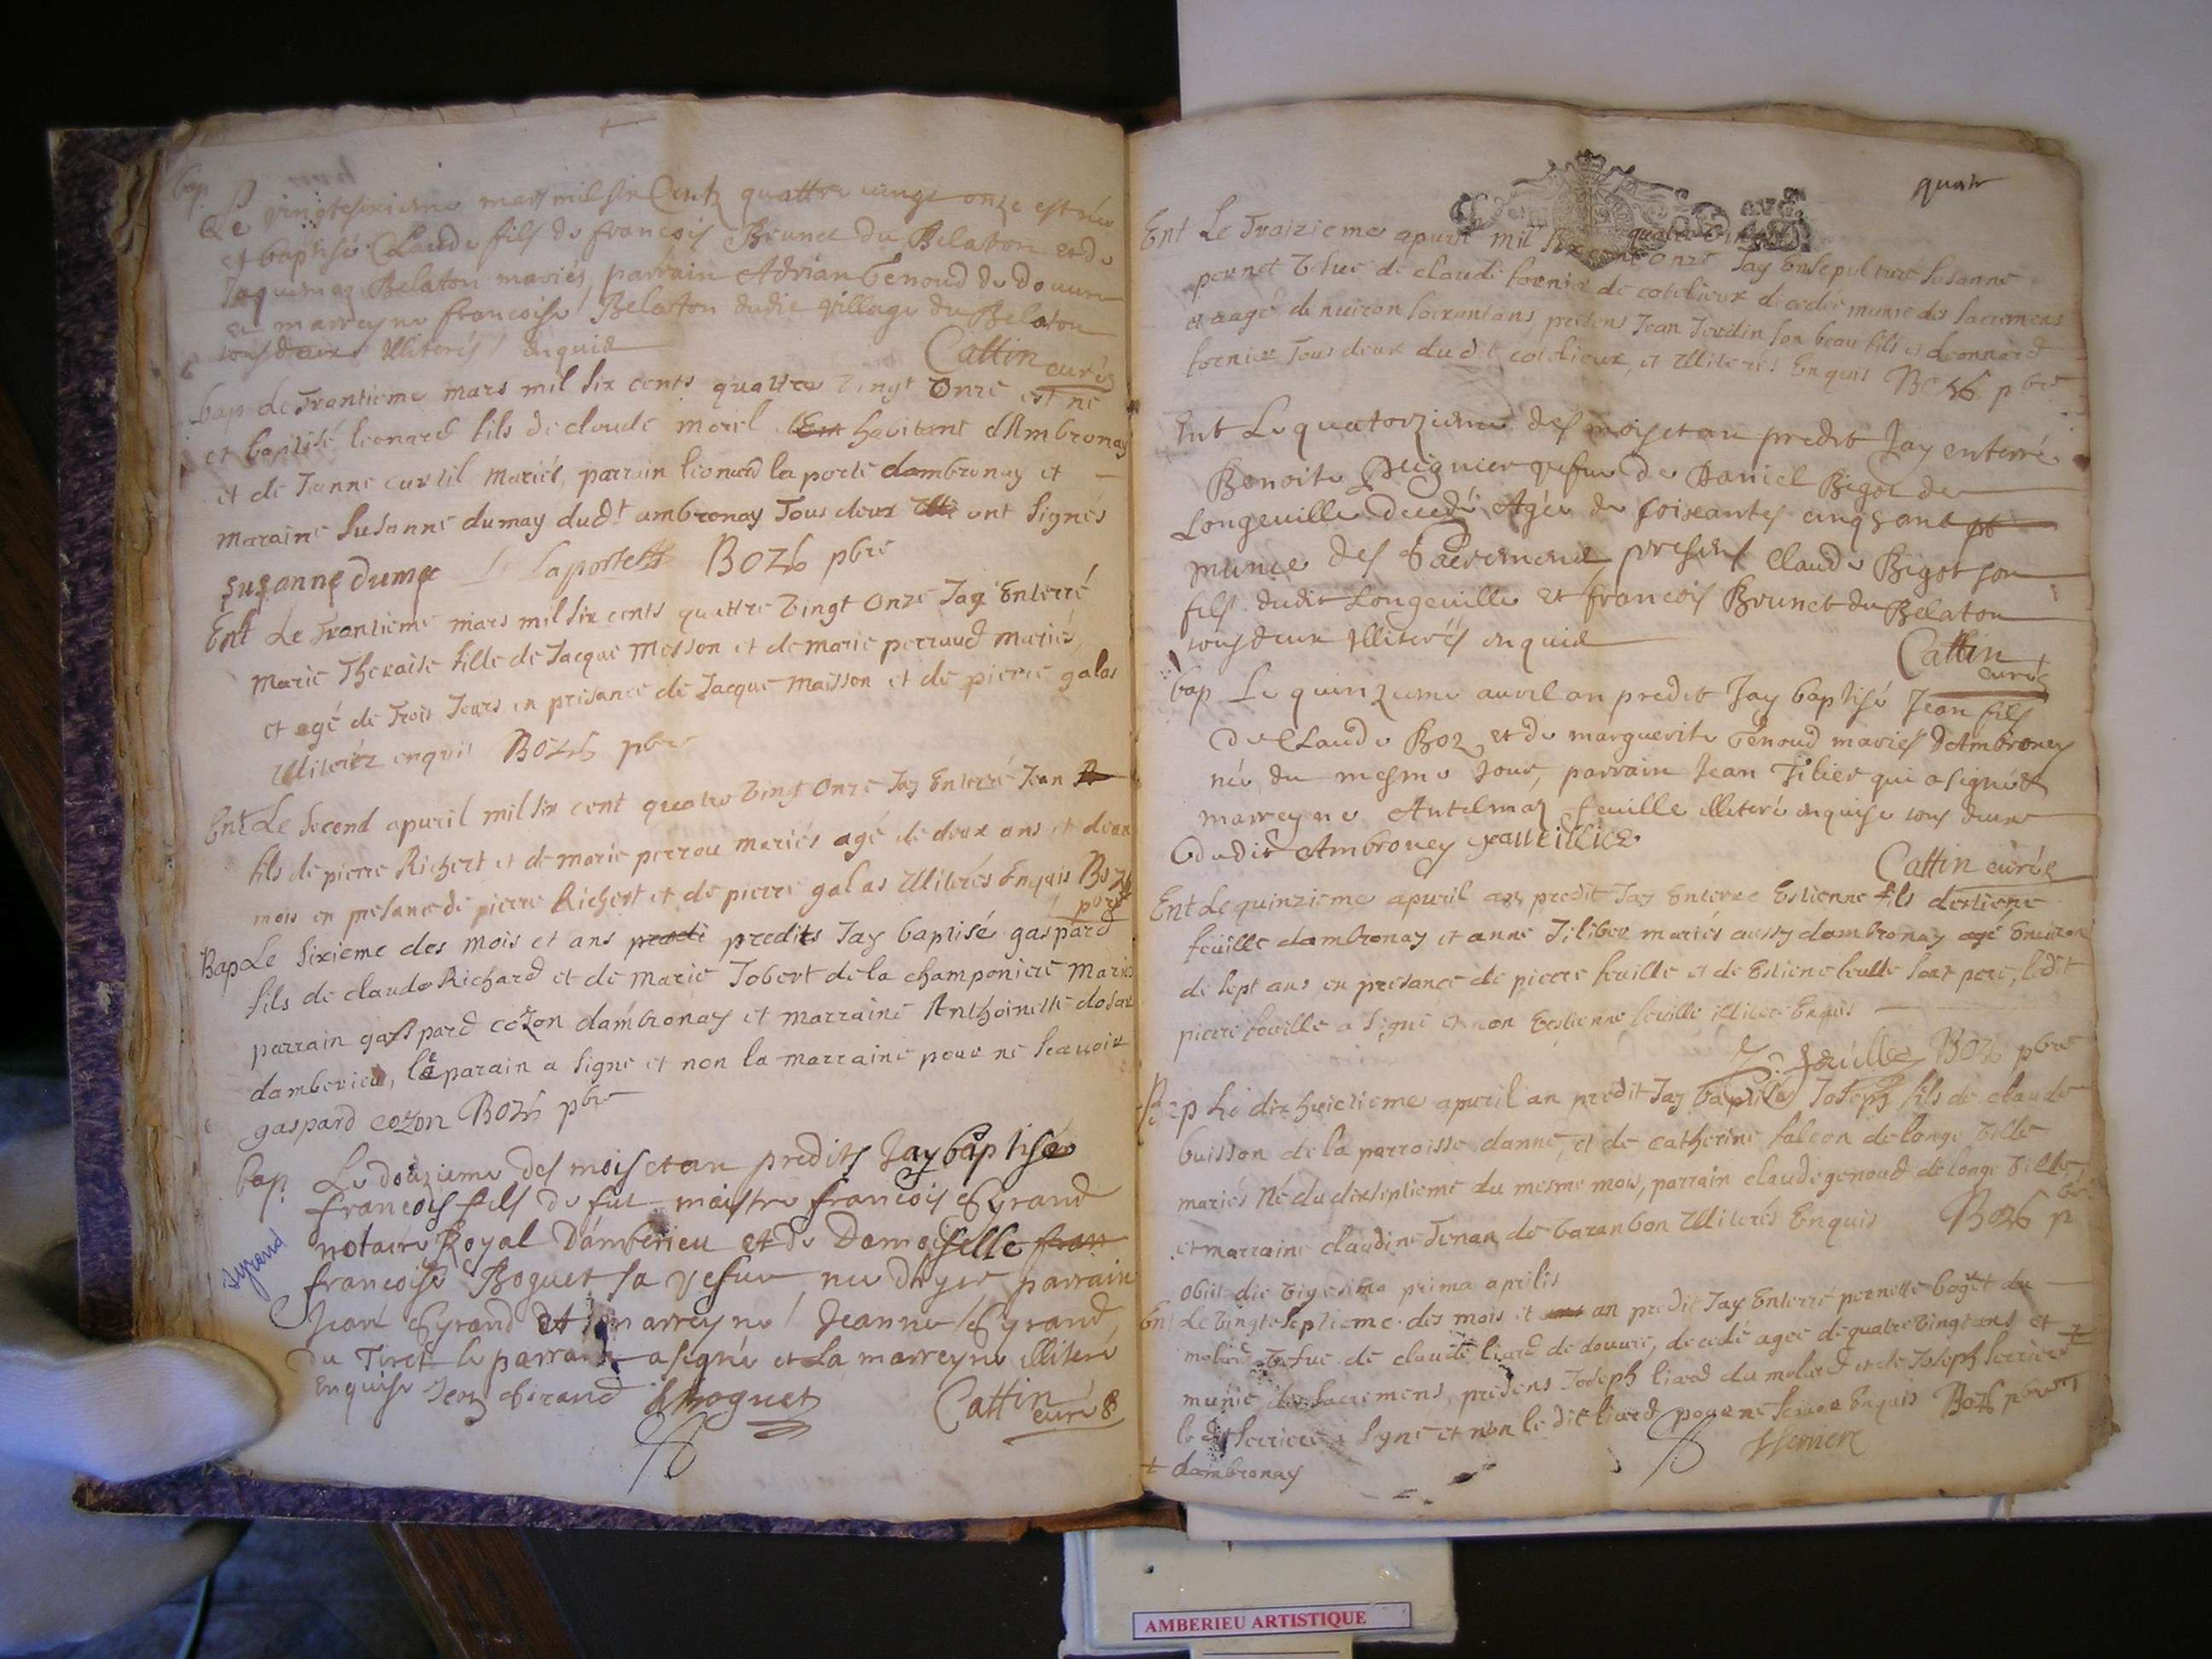 bap.
Le vingtesixieme mars mil six Centz quattre vingt onze est née
et baptisé Claude fils de francois Brunet du Belaton et de
Jaquemaz Belaton mariés, parrain Adrian Genoud de douure
et marreyne francoise Belaton dudit village du Belaton
tous deux illiterés enquis
Cattin curé
bap Le Trantieme mars mil six cents quattre vingt onze est né
et baptisé leonard fils de claude morel habitant d'Ambronay
et de Janne curtil mariés, parrain leonard la porte dambronay et
maraine susanne dumay dudt ambronay Tous deux ont signés
susanne dumae laporte Bozo pbre
Ent Le Trantieme mars mil six cents quattre vingt onze Jay Enterré
marie Theraise fille de Jacque messon et de marie perraud mariés,
et agé de Trois Jours en presance de Jacque maisson et de pierre galas
illiteréz enquis Bozo pbre
Ent Le second apuril mil six cent quatre vingt onze Jay Enterré Jean
fils de pierre Richert et de marie perrou mariés agé de deux ans et deux
mois en presance de pierre Richert et de pierre galas illiterés Enquis Bozo
pbre
Bap Le sixieme des mois et ans predits Jay baptisé gaspard
fils de claude Richard et de marie Jobert de la championiere mariés
parrain gaspard cozon dambronay et marraine Anthoinette
damberieu, le parain a signe et non la marraine pour ne scauoir
gaspard cozon Bozo pbre
bap. Le douzieme des mois et an predits Jay baptisé
francois fils de fut maistre francois Gyrand
notaire Royal Dámberieu et de Damoiselle fran
francoise Boguet sa vefue, nee dhyer parrain
Jean Gyrand et marreyne Jeanne Gyrand,
du Tiret le parrain a signé et la marreyne illitere
enquise Jean Girand Boguet Cattin
curé
quatr
Ent Le Traizieme apuril mil six cent quatre vingt onze Jay Ensepulture susanne
pernet vefue de claude fornier de cotelieux decedée munie des sacremens
et aagé denuiron soixantans, presens Jean Jourdin son beau fils et leonnard
fornier Tous deux dudit cotelieux, et illiterés Enquis Bozo pbre
Ent Le quatorzieme des mois et an predit Jay enterré
Benoite Peignier vefue de Daniel Bigot de
Longeuille decedé Agée de soixantes cinqs ans
munie des Sacremens, presens Claude Bigot son
fils dudit Longeuille et francois Brunet du Belaton
tous deux illiterés enquis
Cattin
curé
bap Le quinzieme auril an predit Jay baptisé Jean fils
de Claude Boz et de marguerite Genoud mariés d'Ambroney
née du mesme Jour, parrain Jean Tilier qui a signé et
marreyne Antelmaz feuille illiteré enquise tous deux
dudit Ambroney
Cattin curée
Ent Le quinzieme apuril an predit Jay Enterre Estienne fils destiene
feuille dambronay et anne Tilier mariés aussy dambronay agé Enuiron
de sept ans en presance de pierre feuille et de Estiene feuille sont pere, ledit
pierre feuille a signe et non Estienne feuille illiteré Enquis
feuille Bozo pbre
Bap Le dix huictieme apuril an predit Jay baptisé Joseph fils de claude
buisson de la parroisse danne, et de catherine falcon de longe ville
mariés né du dixseptieme du mesme mois, parrain claude genoud de longe ville,
et marraine claudine Tenan de baranbon illiterés Enquis Bozo pbre
obiit die vigesima prima aprilis
En Le vingtseptieme des mois et an predit Jay Enterré pernette boget du
molard vefue de claude liard de douure, decedé agee de quatre vingt ans et
munie des sacremens, presens Joseph liard du molard et de Joseph serriere +
le dt serriere a signe et non le dit liard pour ne scauoir Enquis Bozo pbre
serriere
+ dambronay
AMBERIEU ARTISTIQUE